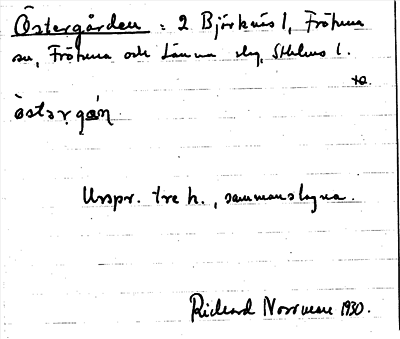 Östergården : 2 Björknäs 1, Frötuna
sn, Frötuna och Länna slg, Sthlms l.
östərgån
Urspr. tre h., sammanslagna.
Richard Norrman 1930.